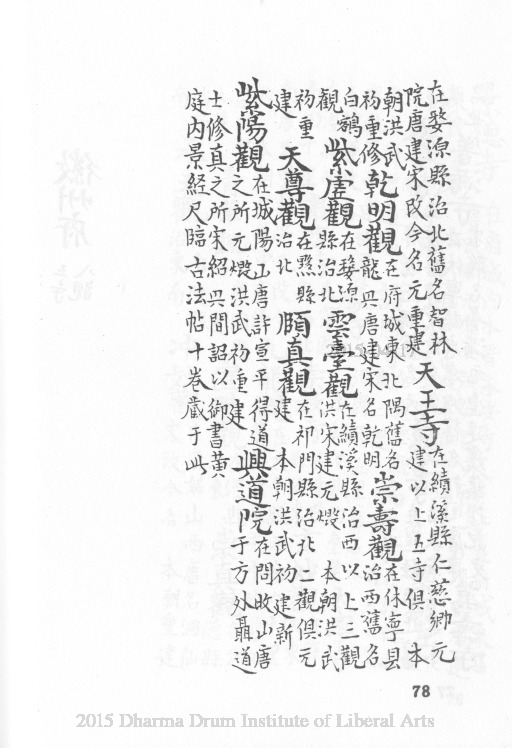 在婺源縣治北舊名智林
院唐建宋改今名元重建
天王寺
在績溪縣仁慈鄉元
建以上五寺俱 本
朝洪武
初重修
乾明觀
在府城東北隅舊名
龍興唐建宋名乾明
崇壽觀
在休寧县
治西舊名
白鶴
觀
紫虛觀
在婺源
縣治北
雲臺觀
在績溪縣治西以上三觀
洪宋建元燬 本朝洪武
初重
建
天尊觀
在黟縣
治北
頤真觀
在祁門縣治北二觀俱元
建 本朝洪武初建新
紫陽觀
在城陽山唐許宣平得道
之所元燬洪武初重建
興道院
在問政山唐
于方外聶道
士修真之所宋紹興間詔以御書黃
庭內景經尺臨古法帖十卷藏于此
78
2015 Dharma Drum Institute of Liberal Arts